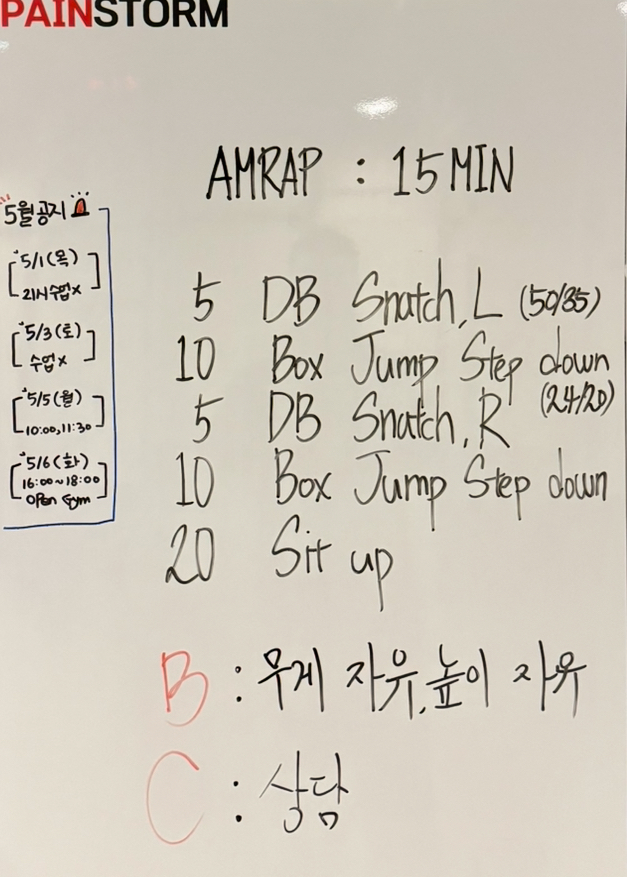 PAINSTORM
AMRAP : 15 MIN
5월 공지
5/1 (목)
21시 수업 X
5/3 (토)
수업 X
5/5 (월)
10:00, 11:30
5/6 (화)
16:00~18:00
Open Gym
5 DB Snatch, L (50/35)
10 Box Jump Step down
(24/20)
5 DB Snatch, R
10 Box Jump Step down
20 Sit up
B : 무게 자유, 높이 자유
C : 상담